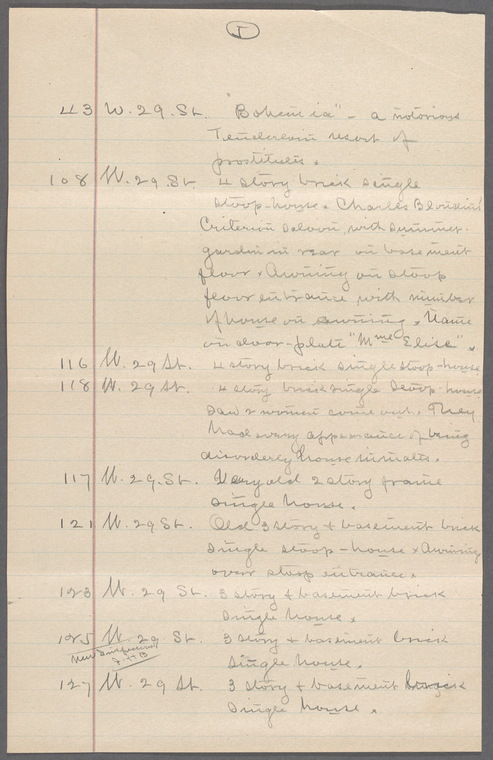 5
43 W. 29. St. "Bohemia" - a notorious
Tenderloin resort of
prostitutes.
108 W. 29. St. 4 story brick single
stoop-house. Charles
Criterion saloon, with summer-
garden in rear on basement
floor. Awning on stoop
floor entrance with number
of house on awning. Name
on door-plate "Mme Elise".
116 W. 29 St. 4 story brick single stoop-house
118 W. 29 St. 4 story brick single stoop-house
Saw 2 women come out. They
had every appearance of being
disorderly house inmates.
117 W. 29. St. Very old 2 story frame
single house.
121 W. 29 St. Old 3 story & basement brick
single stoop-house. Awning
over stoop entrance.
123 W. 29 St. 3 story & basement brick
single house.
125 W. 29 St. 3 story & basement brick
single house.
127 W. 29 St. 3 story & basement brick
single house.